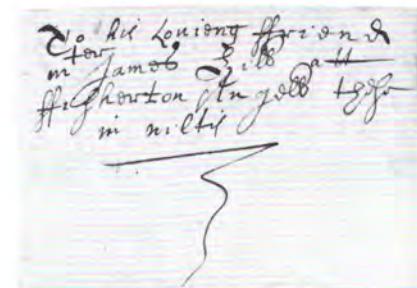 To his Loueing ffriend
mter James Hill att
ffisherton Angell
in wilts